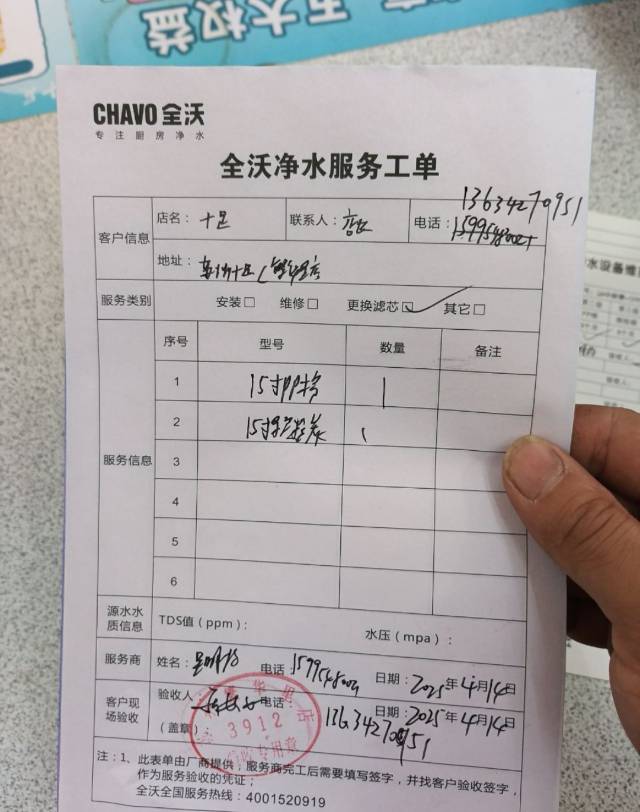 五大权益
CHAVO 全沃
专注厨房净水
全沃净水服务工单
13634270951
客户信息 店名：十足 联系人：店长 电话：
地址：
服务类别 安装□ 维修□ 更换滤芯☑ 其它□
服务信息 序号 型号 数量 备注
1 15寸PP棉 1
2 15寸 炭 1
3
4
5
6
源水水质信息 TDS值（ppm）： 水压（mpa）：
服务商 姓名： 电话 日期：2025年4月14日
客户现场验收 验收人 电话 13634270951 日期：2025年4月14日
（盖章）
3912
专用章
注：1、此表单由厂商提供，服务商完工后需要填写签字，并找客户验收签字，
作为服务验收的凭证；
全沃全国服务热线：4001520919
水设备维